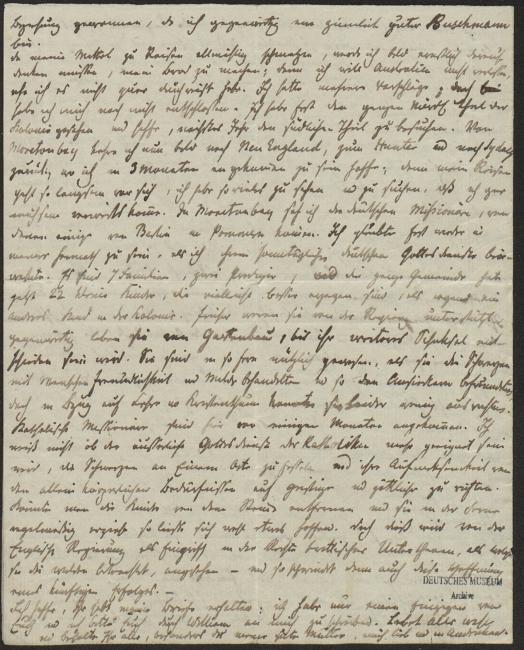 Beziehung gewonnen, da ich gegenwärtig ein ziemlich guter Buschmann
bin.
da meine Mittel zu Reisen allmählig schmelzen, werde ich bald ernstlich daran
denken müssen, mein Brod zu machen; denn ich will Australien nicht verlassen,
ehe ich es nicht quer durchreist habe. Ich hatte mehrere Vorschläge; doch
habe ich mich noch nicht entschlossen. Ich habe fast den ganzen Theil der
Kolonie gesehen und hoffe, nächstes Jahr den südlichen Theil zu besuchen. Von
Moretonbay kehre ich nun bald nach Neu England, zum Hunter und nach Sydney
zurück, wo ich in 3 Monaten angekommen zu sein hoffe; denn mein Reisen
geht so langsam vor sich, ich habe so viel zu sehen und zu suchen, daß ich nur
vorwärts komme. In Moretonbay sah ich die deutschen Missionäre, von
denen einige von Berlin in Pommern kamen. Ich glaubte fast wieder in
meiner Heimath zu sein, als ich ihrem sonntäglichen deutschen Gottesdienste bei-
wohnte. Es sind 7 Familien, zwei Prediger, und die ganze Gemeinde hat
jetzt 22 kleine Kinder, die vielleicht besser erzogen sind, als irgend ein
anderes Kind in der Kolonie. Früher waren sie von der Regierung unterstützt,
gegenwärtig leben sie von Gartenbau, bis ihr weiteres Schicksal ent-
schieden sein wird. Sie sind in so fern nützlich gewesen, als sie die Schwarzen
mit Menschenfreundlichkeit und Milde behandelten und so den Ansiedlern befreundeten,
doch in Bezug auf Lehre und Christenthum konnten sie leider wenig ausrichten.
Katholische Missionäre sind hier vor einigen Monaten angekommen. Ich
weiß nicht ob der äusserliche Gottesdienst der Katholiken mehr geeignet sein
wird, die Schwarzen an Einem Orte zu fesseln und ihre Aufmerksamkeit von
den allein körperlichen Bedürfnissen auf geistige und göttliche zu richten.
Könnte man die Kinder von dem Stamm entfernen und sie in der
regelmäßig erziehn so ließe sich wohl etwas hoffen. doch dieß wird von der
Englischen Regierung als Eingriff in die Rechte brittischer Unterthanen, als welche
sie die wilden betrachtet, angesehen – und so schwindet denn auch diese Hoffnung
eines künftigen Erfolges. –
Ich hoffe, Ihr habt meine Briefe erhalten; ich habe nur einen einzigen von
Euch und ich bitte Euch durch William an mich zu schreiben. Lebet Alle wohl
und behaltet Ihr alle, besonders du meine gute Mutter, mich lieb und in Andenken.
DEUTSCHES MUSEUM
Archive